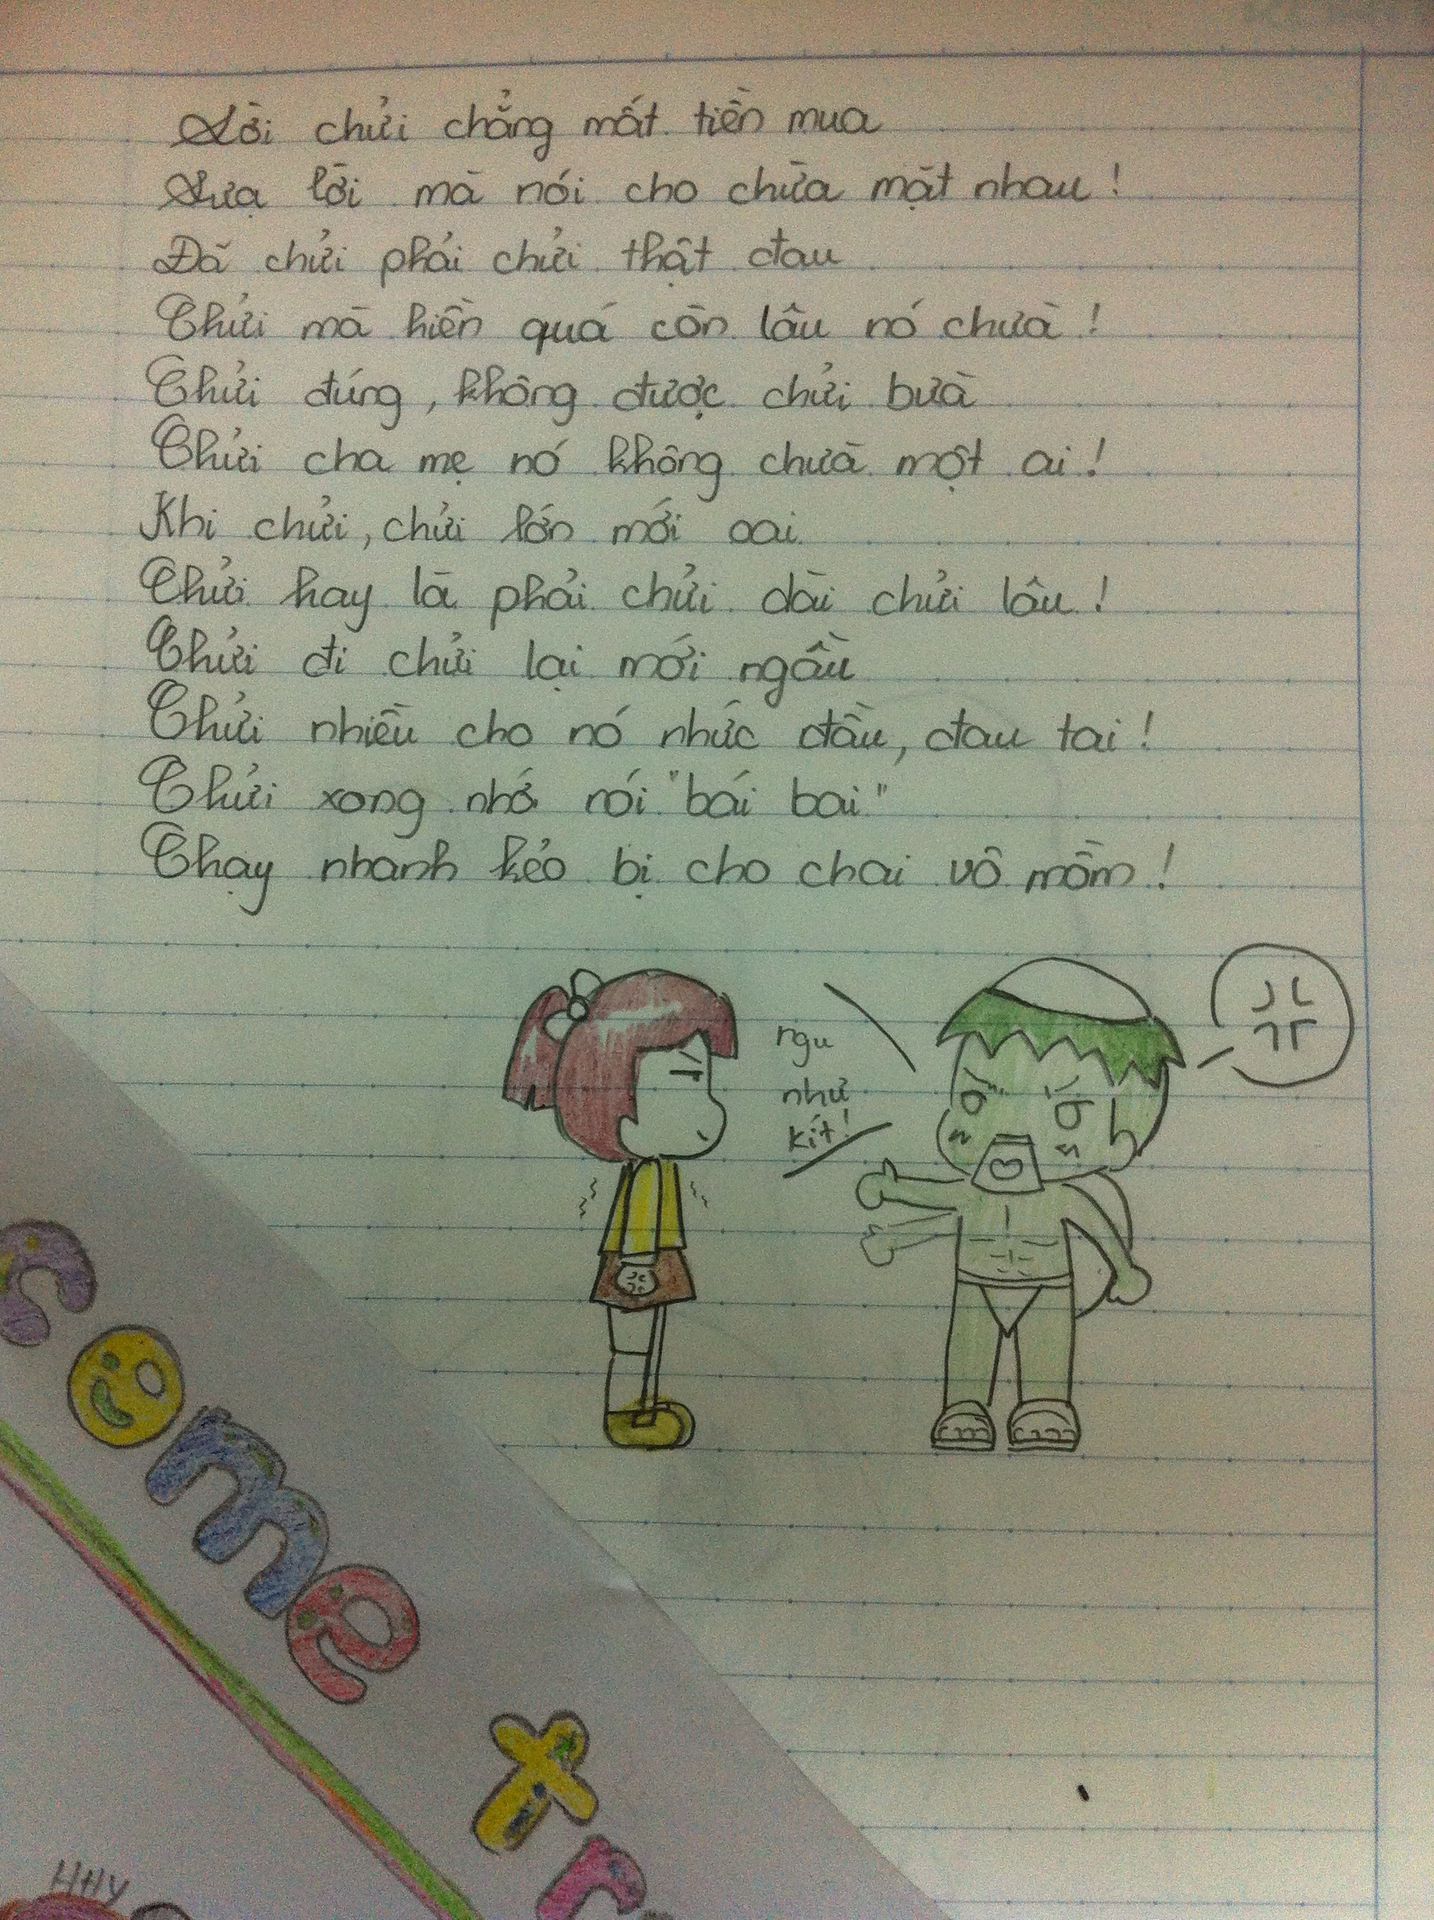 Lời chửi chẳng mất tiền mua
Lựa lời mà nói cho chừa mặt nhau!
Đã chửi phải chửi thật đau
Chửi mà hiền quá còn lâu nó chừa!
Chửi đúng, không được chửi bừa
Chửi cha mẹ nó không chừa một ai!
Khi chửi, chửi lớn mới oai
Chửi hay là phải chửi dài chửi lâu!
Chửi đi chửi lại mới ngầu
Chửi nhiều cho nó nhức đầu, đau tai!
Chửi xong nhớ nói "bái bai"
Chạy nhanh kẻo bị cho chai vô mồm!
ngu
như
kít!
come tr
HHy